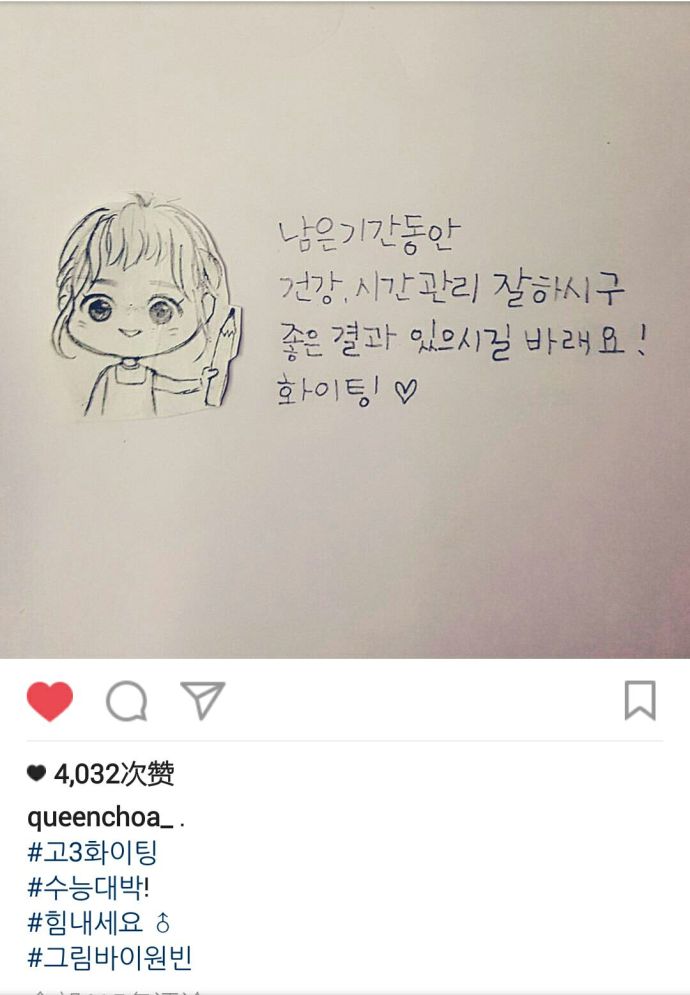 남은기간동안
건강, 시간관리 잘하시구
좋은 결과 있으시길 바래요!
화이팅! ♡
4,032次赞
queenchoa_ .
#고3화이팅
#수능대박!
#힘내세요 ♂
#그림바이원빈